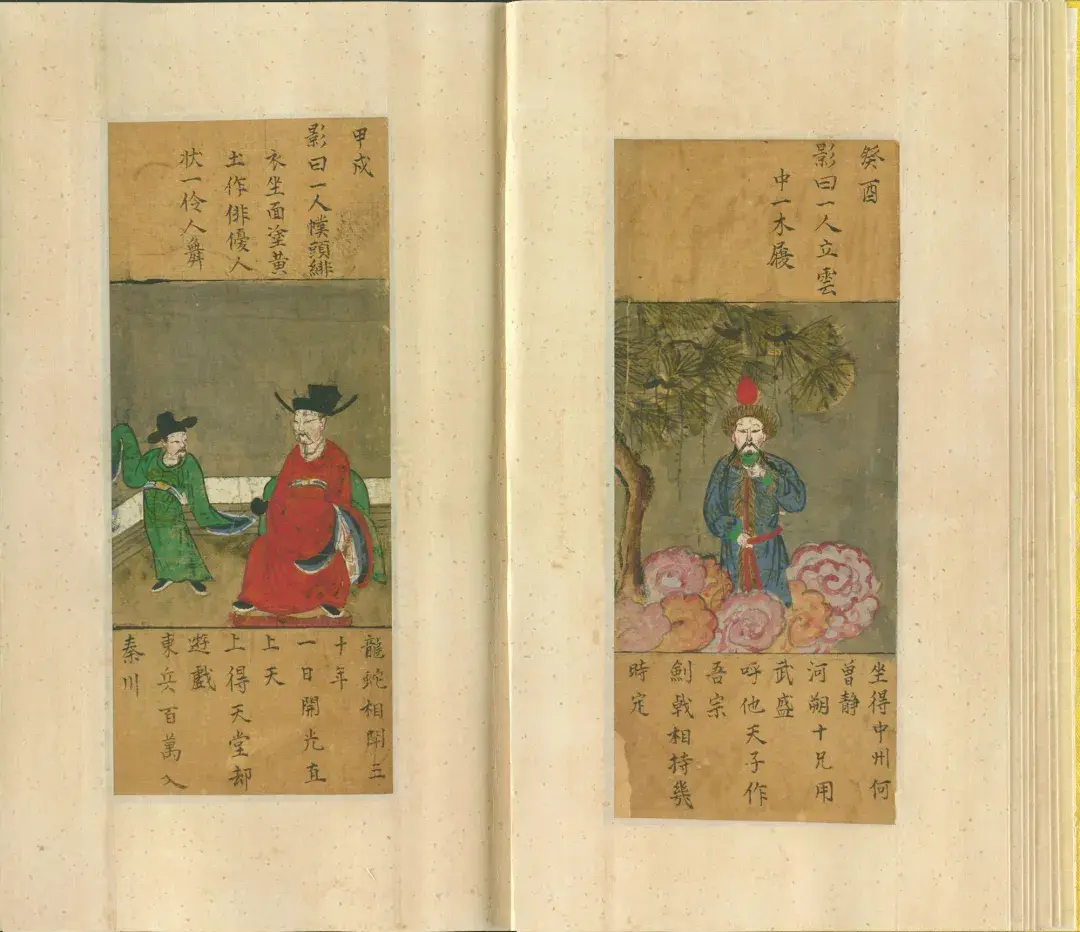 癸酉
影曰一人立雲
中一木屐
坐得中州何
曾靜
河朔十兄用
武盛
呼他天子作
吾宗
劍戟相持幾
時定
甲戌
影曰一人幞頭緋
衣坐面塗黃
土作俳優人
狀一伶人舞
龍蛇相鬪三
十年
一日開光直
上天
上得天堂却
遊戲
東兵百萬入
秦川